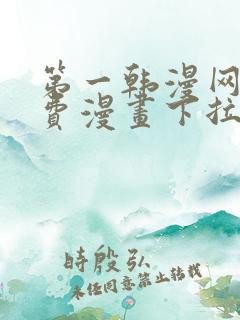 第一韩漫网
费漫画下拉
時殷弘
未经同意禁止转载